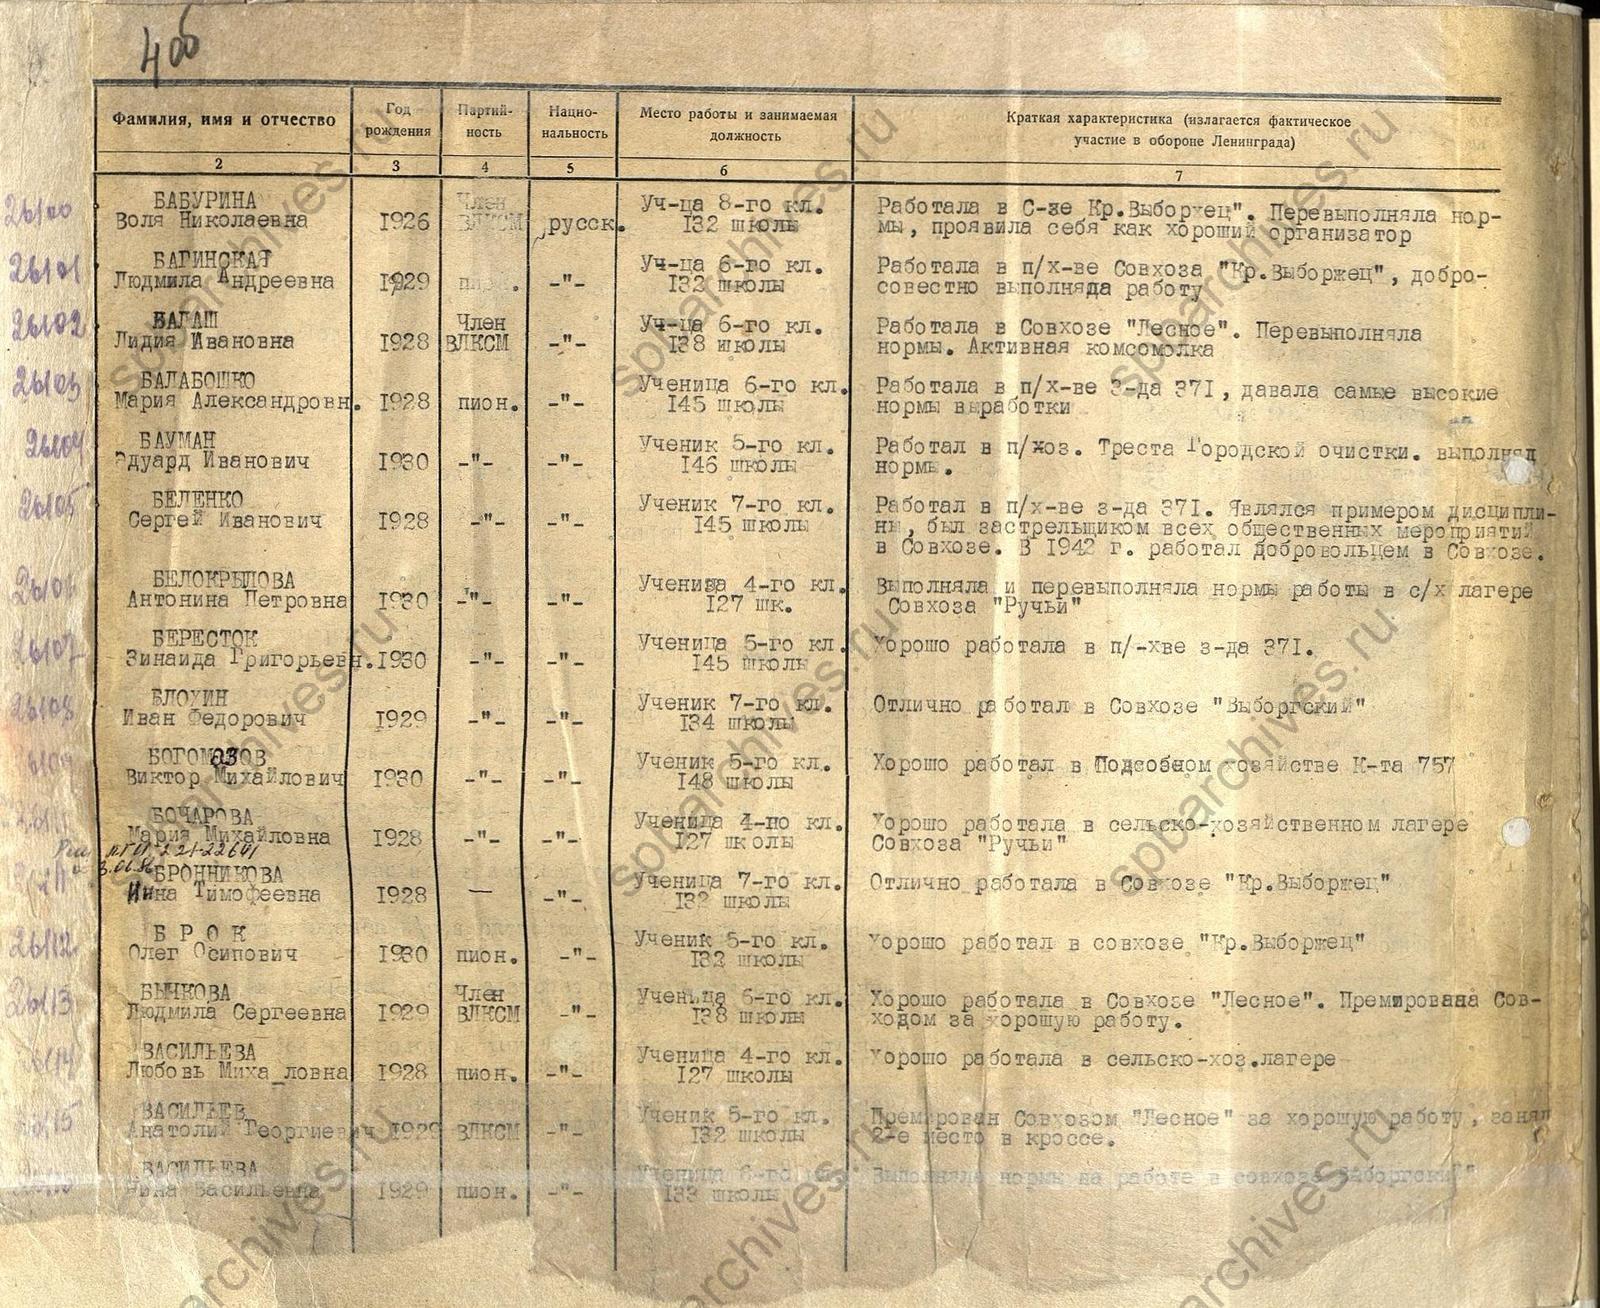 406
Фамилия, имя и отчество
Год рождения
Партий-
ность
Нацио-
нальность
Место работы и занимаемая
должность
Краткая характеристика (излагается фактическое
участие в обороне Ленинграда)
2 3 4 5 6 7
26100 БАБУРИНА Член Уч-ца 8-го кл. Работала в С-зе Кр.Выборжец". Перевыполняла нор-
Воля Николаевна 1926 ВЛКСМ русск. 132 школы мы, проявила себя как хороший организатор
26101 БАГИНСКАЯ Уч-ца 6-го кл. Работала в п/х-ве Совхоза "Кр.Выборжец", добро-
Людмила Андреевна 1929 -"- 132 школы совестно выполняда работу
26102 БАЛАШ Член Уч-ца 6-го кл. Работала в Совхозе "Лесное". Перевыполняла
Лидия Ивановна 1928 ВЛКСМ -"- 138 школы нормы. Активная комсомолка
26103 БАЛАБОШКО Ученица 6-го кл. Работала в п/х-ве З-да 371, давала самые высокие
Мария Александровн. 1928 пион. -"- 145 школы нормы выработки
26104 БАУМАН Ученик 5-го кл. Работал в п/хоз. Треста Городской очистки. выполнял
Эдуард Иванович 1930 -"- -"- 146 школы нормы.
26105 БЕЛЕНКО Ученик 7-го кл. Работал в п/х-ве з-да 371. Являлся примером дисципли-
Сергей Иванович 1928 -"- -"- 145 школы ны, был застрельщиком всех общественных мероприятий
в Совхозе. В 1942 г. работал добровольцем в Совхозе.
26106 БЕЛОКРЫЛОВА Ученица 4-го кл. Выполняла и перевыполняла нормы работы в с/х лагере
Антонина Петровна 1930 -"- -"- 127 шк. Совхоза "Ручьи"
26107 БЕРЕСТОК Ученица 5-го кл. Хорошо работала в п/-хве з-да 371.
Зинаида Григорьевн. 1930 -"- -"- 145 школы
26108 БЛОХИН Ученик 7-го кл. Отлично работал в Совхозе "Выборгский"
Иван Федорович 1929 -"- -"- 134 школы
26109 БОГОМАЗОВ Ученик 5-го кл. Хорошо работал в Подсобном хозяйстве К-та 757
Виктор Михайлович 1930 -"- -"- 148 школы
БОЧАРОВА Ученица 4-по кл. Хорошо работала в сельско-хозяйственном лагере
Мария Михайловна 1928 -"- -"- 127 школы Совхоза "Ручьи"
БРОННИКОВА Ученица 7-го кл. Отлично работала в Совхозе "Кр.Выборжец"
Нина Тимофеевна 1928 — -"- 132 школы
26112 Б Р О К Ученик 5-го кл. Хорошо работал в совхозе "Кр.Выборжец"
Олег Осипович 1930 пион. -"- 132 школы
26113 БЫЧКОВА Член Ученица 6-го кл. Хорошо работала в Совхозе "Лесное". Премирована Сов-
Людмила Сергеевна 1929 ВЛКСМ -"- 138 школы ходом за хорошую работу.
26114 ВАСИЛЬЕВА Ученица 4-го кл. Хорошо работала в сельско-хоз.лагере
Любовь Миха ловна 1928 пион. -"- 127 школы
26115 ВАСИЛЬЕВ Ученик 5-го кл. Премирован Совхозом "Лесное" за хорошую работу, занял
Анатолий Георгиевич 1929 ВЛКСМ -"- 132 школы 2-е место в кроссе.
ВАСИЛЬЕВА Ученица 6-го кл. Выполняла нормы на работе в совхозе Выборгский"
Нина Васильевна 1929 пион. -"- 133 школы
spbarchives.ru